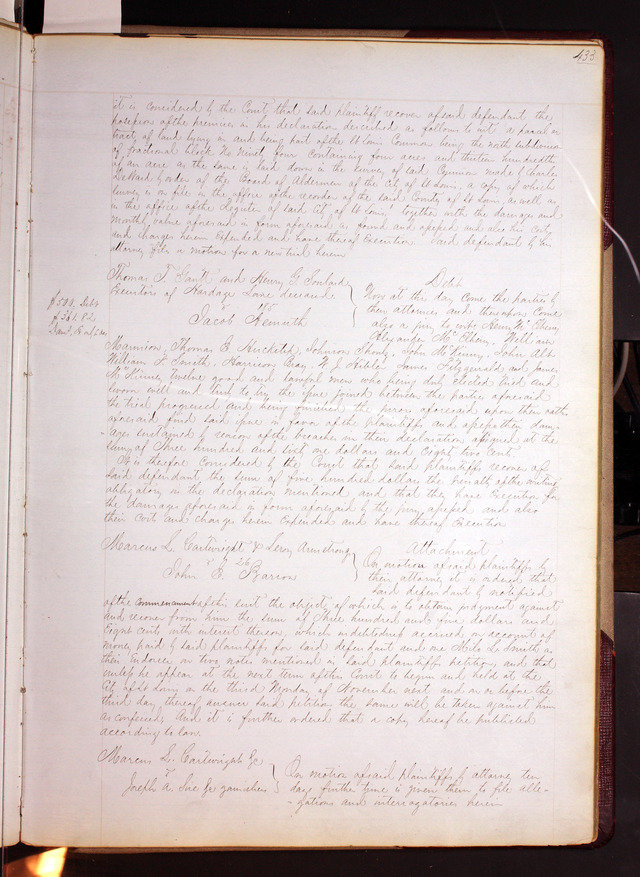 433
it is considered by the Court that said plaintiff recover of said defendant the
possession of the premises in his declaration described as follows to wit a parcel or
tract of land lying in and being part of the St Louis Common being the north subdivision
of fractional block No Ninety four containing four acres and thirteen hundredths
of an acre as the same is laid down in the survey of said Common made by Charles
DeWard by order of the Board of Aldermen of the City of St Louis, a copy of which
survey is on file in the office of the recorder of the said County of St Louis, as well as
in the office of the Register of said City of St Louis, together with the damages and
monthly value aforesaid in form aforesaid as found and assessed and also his costs
and charges herein expended and have thereof Execution. Said defendant by his
attorney files a motion for a new trial herein
Thomas T. Gantt and Henry G. Soulard
Executors of Hardage Lane deceased
vs
Jacob
Debt
Now at this day come the parties by
their attorneys and thereupon come
also a jury to wit: Henry Mc
Alexander Mc William
$500, Debt
$361,02
Marmion, Thomas E. Hesketed, Johnson Shouts, John McKinny, John Alt
William F. Smith, Harrison Gay, W. J. Hibler James Fitzgerald and James
McKinney twelve good and lawful men who being duly elected tried and
sworn well and truly to try the issue joined between the parties aforesaid
the trial progressed and being finished the jurors aforesaid upon their oaths
aforesaid find said issue in favor of the plaintiffs and assess their dam-
-ages sustained by reason of the breaches in their declaration assigned at the
sum of three hundred and sixty one dollars and eighty two cents.
It is therefore considered by the Court that said plaintiffs recover of
said defendant the sum of five hundred dollars the penalty of the writing
obligatory in the declaration mentioned and that they have Execution for
the damages aforesaid in form aforesaid by the jury assessed and also
their costs and charges herein expended and have thereof Execution
Marcus L. Cartwright & Leroy Armstrong
vs 26
John E. Barrow
Attachment
On motion of said plaintiffs by
their attorney it is ordered that
said defendant be notified
of the commencement of this suit the object of which is to obtain judgment against
and recover from him the sum of three hundred and five dollars and
Eighty cents with interest thereon, which indebtedness accrued on account of
money paid by said plaintiffs for said defendant and one L. Smith as
their Endorser on two notes mentioned in said plaintiffs petition, and that
unless he appear at the next term of this Court to begin and held at the
City of St Louis on the third Monday of November next and on or before the
third day thereof answer said petition the same will be taken against him
as confessed. And it is further ordered that a copy hereof be published
according to law.
Marcus L. Cartwright &c
vs
Joseph A. &c garnishees
On motion of said plaintiffs by attorney ten
days further time is given them to file alle-
-gations and interrogatories herein